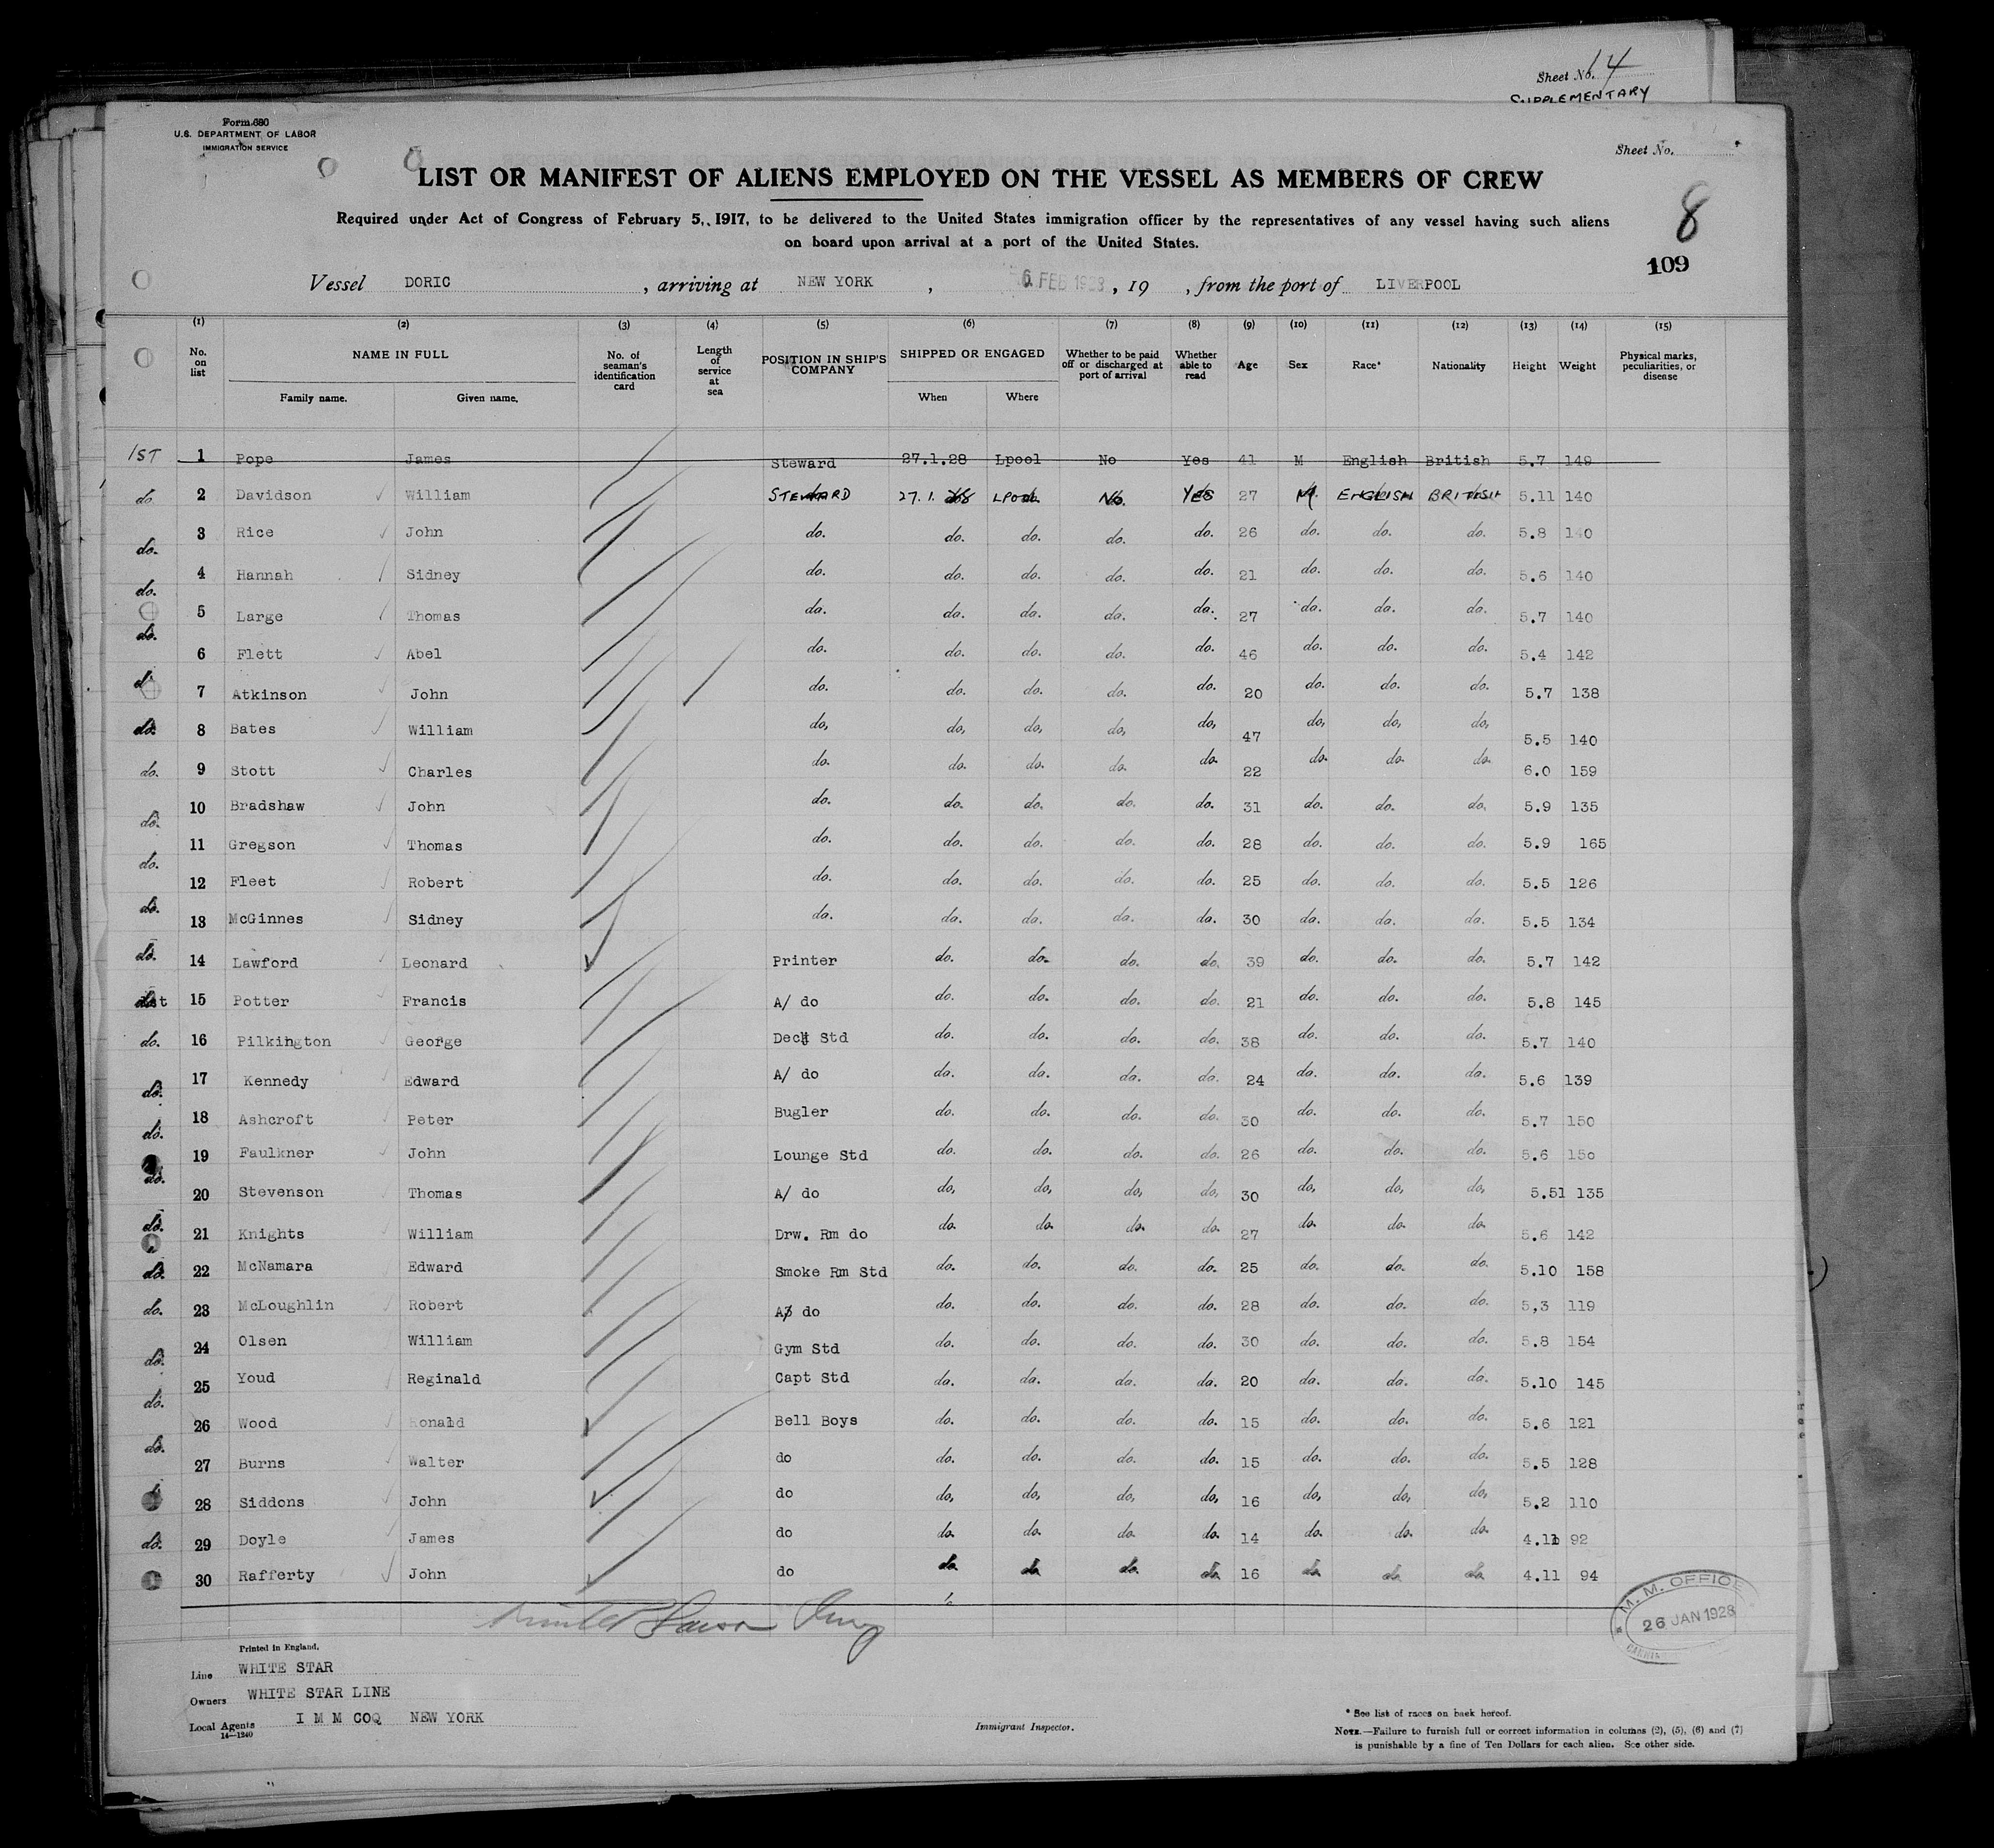 Sheet No. 14
SUPPLEMENTARY
Form 686
U.S. DEPARTMENT OF LABOR
IMMIGRATION SERVICE
Sheet No.
LIST OR MANIFEST OF ALIENS EMPLOYED ON THE VESSEL AS MEMBERS OF CREW
Required under Act of Congress of February 5, 1917, to be delivered to the United States immigration officer by the representatives of any vessel having such aliens
on board upon arrival at a port of the United States.
8
109
Vessel DORIC, arriving at NEW YORK, 6 FEB 1928, 19 , from the port of LIVERPOOL
(1) (2) (3) (4) (5) (6) (7) (8) (9) (10) (11) (12) (13) (14) (15)
No. on list NAME IN FULL Family name. Given name. No. of seaman's identification card Length of service at sea POSITION IN SHIP'S COMPANY SHIPPED OR ENGAGED When Where Whether to be paid off or discharged at port of arrival Whether able to read Age Sex Race* Nationality Height Weight Physical marks, peculiarities, or disease
1ST 1 Pope James Steward 27.1.28 Lpool No Yes 41 M English British 5.7 149
do 2 Davidson William STEWARD 27.1.28 LPOOL No. YES 27 M ENGLISH BRITISH 5.11 140
do. 3 Rice John do. do. do. do. do. 26 do. do. do. 5.8 140
do. 4 Hannah Sidney do. do. do. do. do. 21 do. do. do. 5.6 140
do. 5 Large Thomas do. do. do. do. do. 27 do. do. do. 5.7 140
do. 6 Flett Abel do. do. do. do. do. 46 do. do. do. 5.4 142
7 Atkinson John do. do. do. do. do. 20 do. do. do. 5.7 138
do. 8 Bates William do. do. do. do. do. 47 do. do. do. 5.5 140
do. 9 Stott Charles do. do. do. do. do. 22 do. do. do. 6.0 159
do. 10 Bradshaw John do. do. do. do. do. 31 do. do. do. 5.9 135
do. 11 Gregson Thomas do. do. do. do. do. 28 do. do. do. 5.9 165
do. 12 Fleet Robert do. do. do. do. do. 25 do. do. do. 5.5 126
13 McGinnes Sidney do. do. do. do. do. 30 do. do. do. 5.5 134
do. 14 Lawford Leonard Printer do. do. do. do. 39 do. do. do. 5.7 142
15 Potter Francis A/ do do. do. do. do. 21 do. do. do. 5.8 145
do. 16 Pilkington George Deck Std do. do. do. do. 38 do. do. do. 5.7 140
do. 17 Kennedy Edward A/ do do. do. do. do. 24 do. do. do. 5.6 139
do. 18 Ashcroft Peter Bugler do. do. do. do. 30 do. do. do. 5.7 150
19 Faulkner John Lounge Std do. do. do. do. 26 do. do. do. 5.6 150
do. 20 Stevenson Thomas A/ do do. do. do. do. 30 do. do. do. 5.51 135
do. 21 Knights William Drw. Rm do do. do. do. do. 27 do. do. do. 5.6 142
do. 22 McNamara Edward Smoke Rm Std do. do. do. do. 25 do. do. do. 5.10 158
do. 23 McLoughlin Robert A/ do do. do. do. do. 28 do. do. do. 5,3 119
do. 24 Olsen William Gym Std do. do. do. do. 30 do. do. do. 5.8 154
do. 25 Youd Reginald Capt Std do. do. do. do. 20 do. do. do. 5.10 145
do. 26 Wood Ronald Bell Boys do. do. do. do. 15 do. do. do. 5.6 121
27 Burns Walter do do. do. do. do. 15 do. do. do. 5.5 128
28 Siddons John do do. do. do. do. 16 do. do. do. 5.2 110
do. 29 Doyle James do do. do. do. do. 14 do. do. do. 4.11 92
30 Rafferty John do do. do. do. do. 16 do. do. do. 4.11 94
M. M. OFFICE
26 JAN 1928
Printed in England.
Line WHITE STAR
Owners WHITE STAR LINE
Local Agents I M M COQ NEW YORK
14—1240
Immigrant Inspector.
* See list of races on back hereof.
NOTE.—Failure to furnish full or correct information in columns (2), (5), (6) and (7)
is punishable by a fine of Ten Dollars for each alien. See other side.